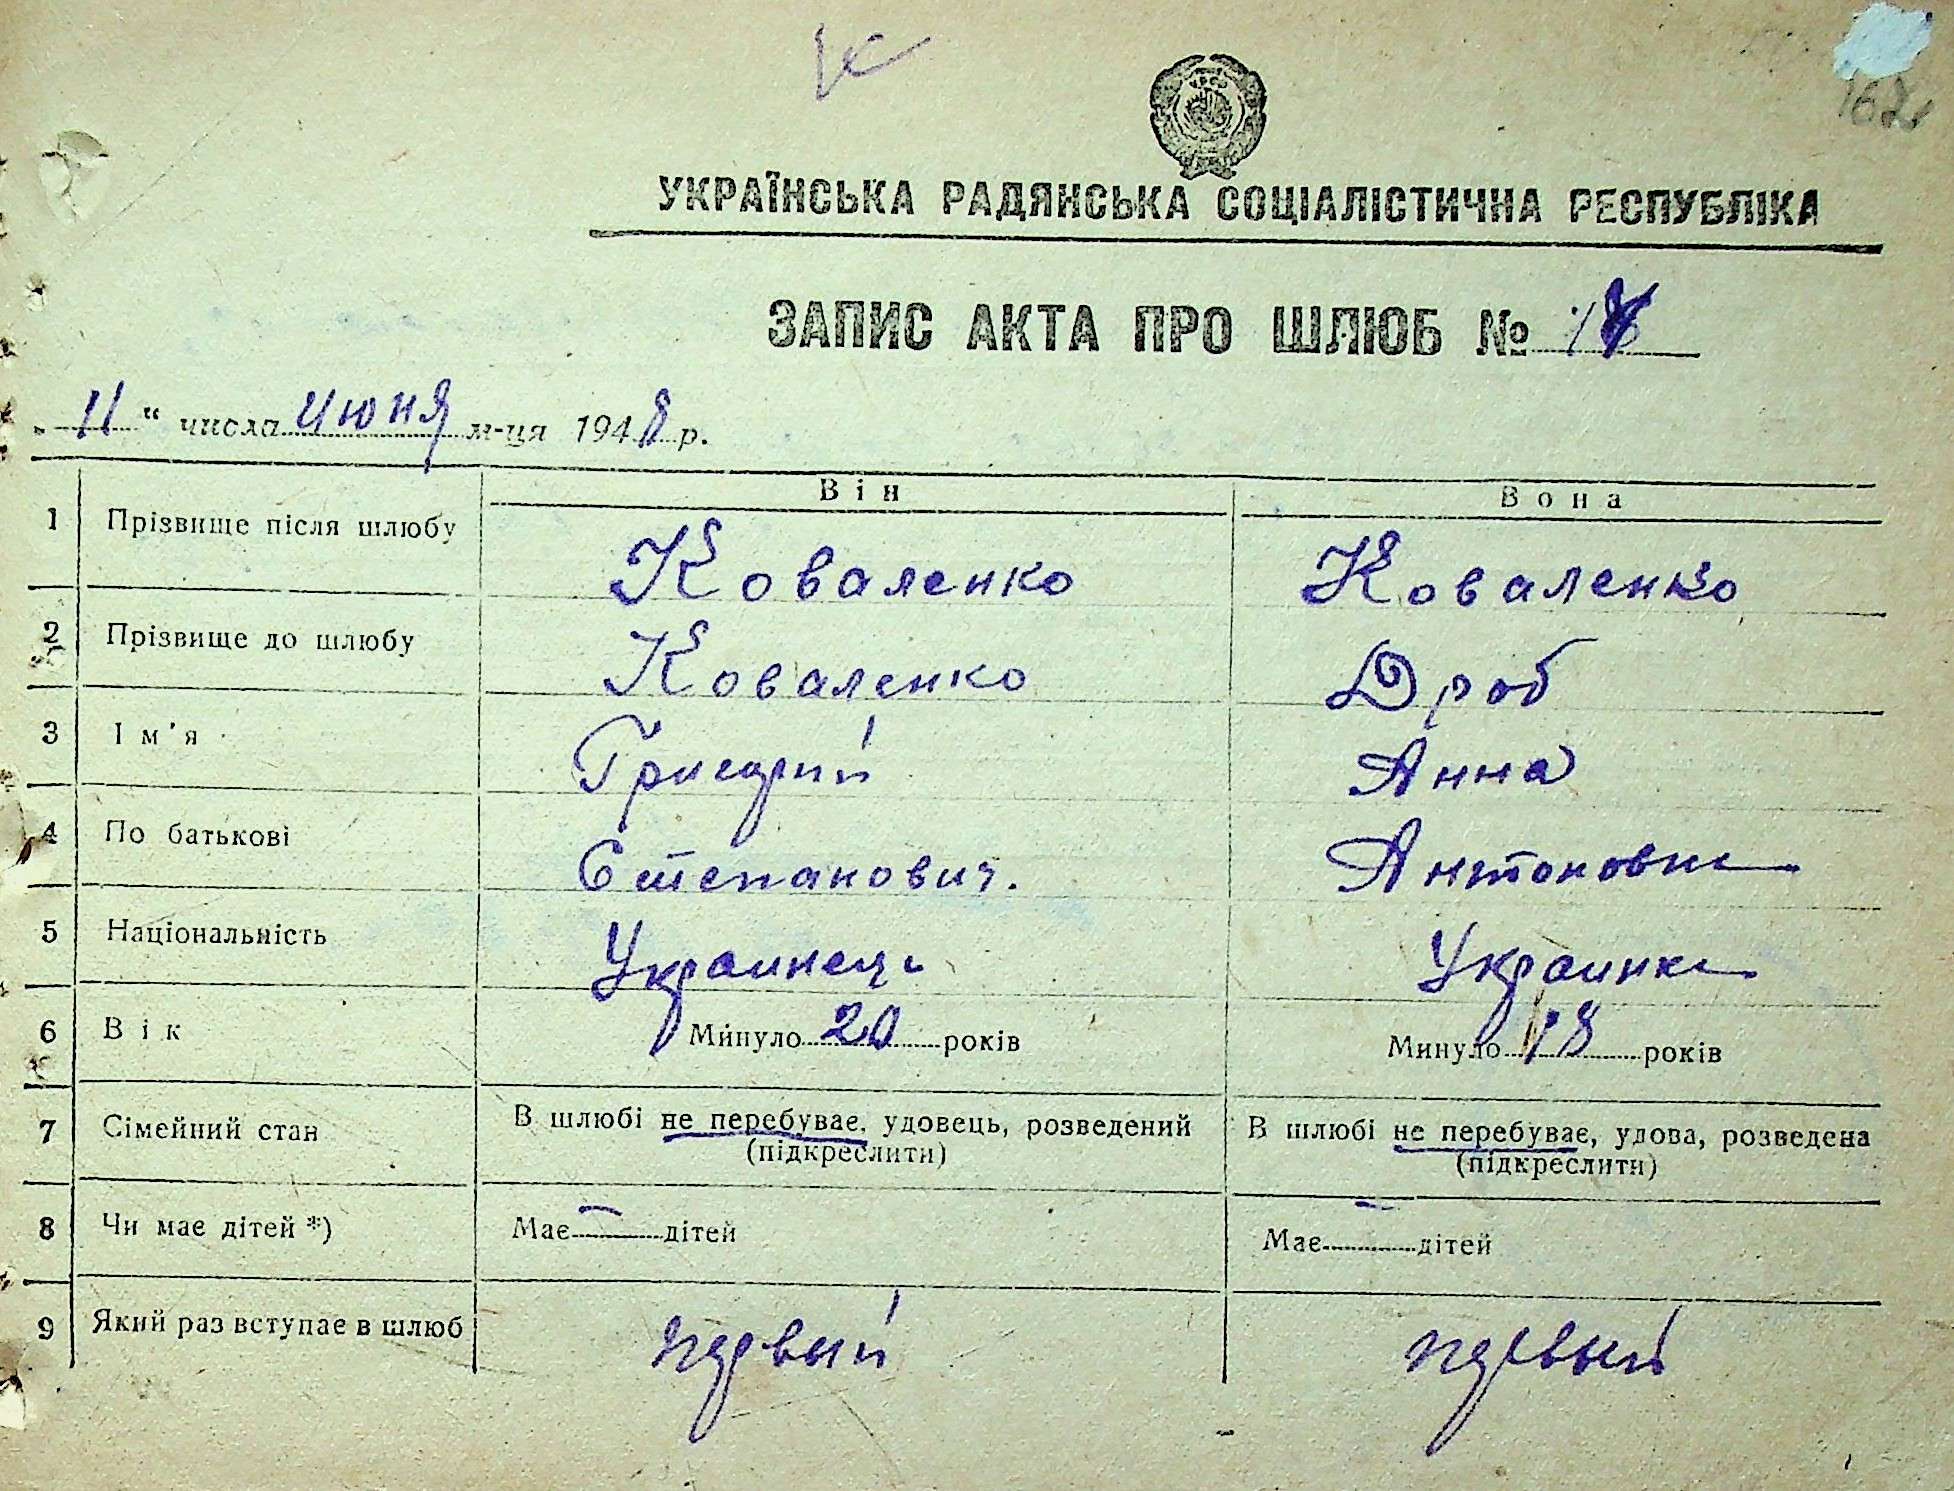 УКРАЇНСЬКА РАДЯНСЬКА СОЦІАЛІСТИЧНА РЕСПУБЛІКА
ЗАПИС АКТА ПРО ШЛЮБ №
„11“ числа июня м-ця 1948 р.
Він Вона
1 Прізвище після шлюбу Коваленко Коваленко
2 Прізвище до шлюбу Коваленко Дроб
3 Ім'я Григорий Анна
4 По батькові Степанович. Антоновна
5 Національність Украинець Украинка
6 Вік Минуло 20 років Минуло 18 років
7 Сімейний стан В шлюбі не перебуває, удовець, розведений В шлюбі не перебуває, удова, розведена
(підкреслити) (підкреслити)
8 Чи має дітей *) Має — дітей Має — дітей
9 Який раз вступає в шлюб первый первый